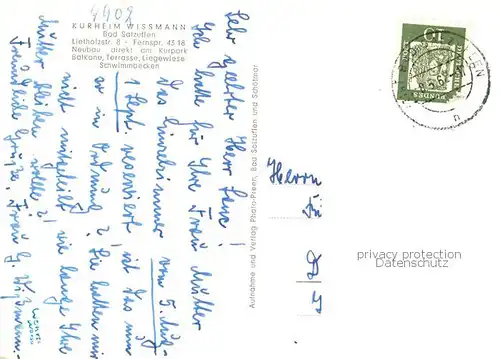 4402
KURHEIM WISSMANN
Bad Salzuflen
Lietholzstr. 8 - Fernspr. 43 18
Neubau direkt am Kurpark
Balkone, Terrasse, Liegewiese
Schwimmbecken
Sehr geehrter Herr
Ich hatte für Ihre Frau Mutter
das Einzelzimmer vom 5. Aug–
1. Sept. reserviert, ist das nun
so in Ordnung? Sie hatten mir
nicht mitgeteilt wie lange Ihre
Mutter bleiben wollte?
Freundliche Grüße, Frau G. Wißmann
Aufnahme und Verlag Photo-Preen, Bad Salzuflen und Schötmar
Herrn
privacy protection
Datenschutz
10
DEUTSCHE
BUNDES